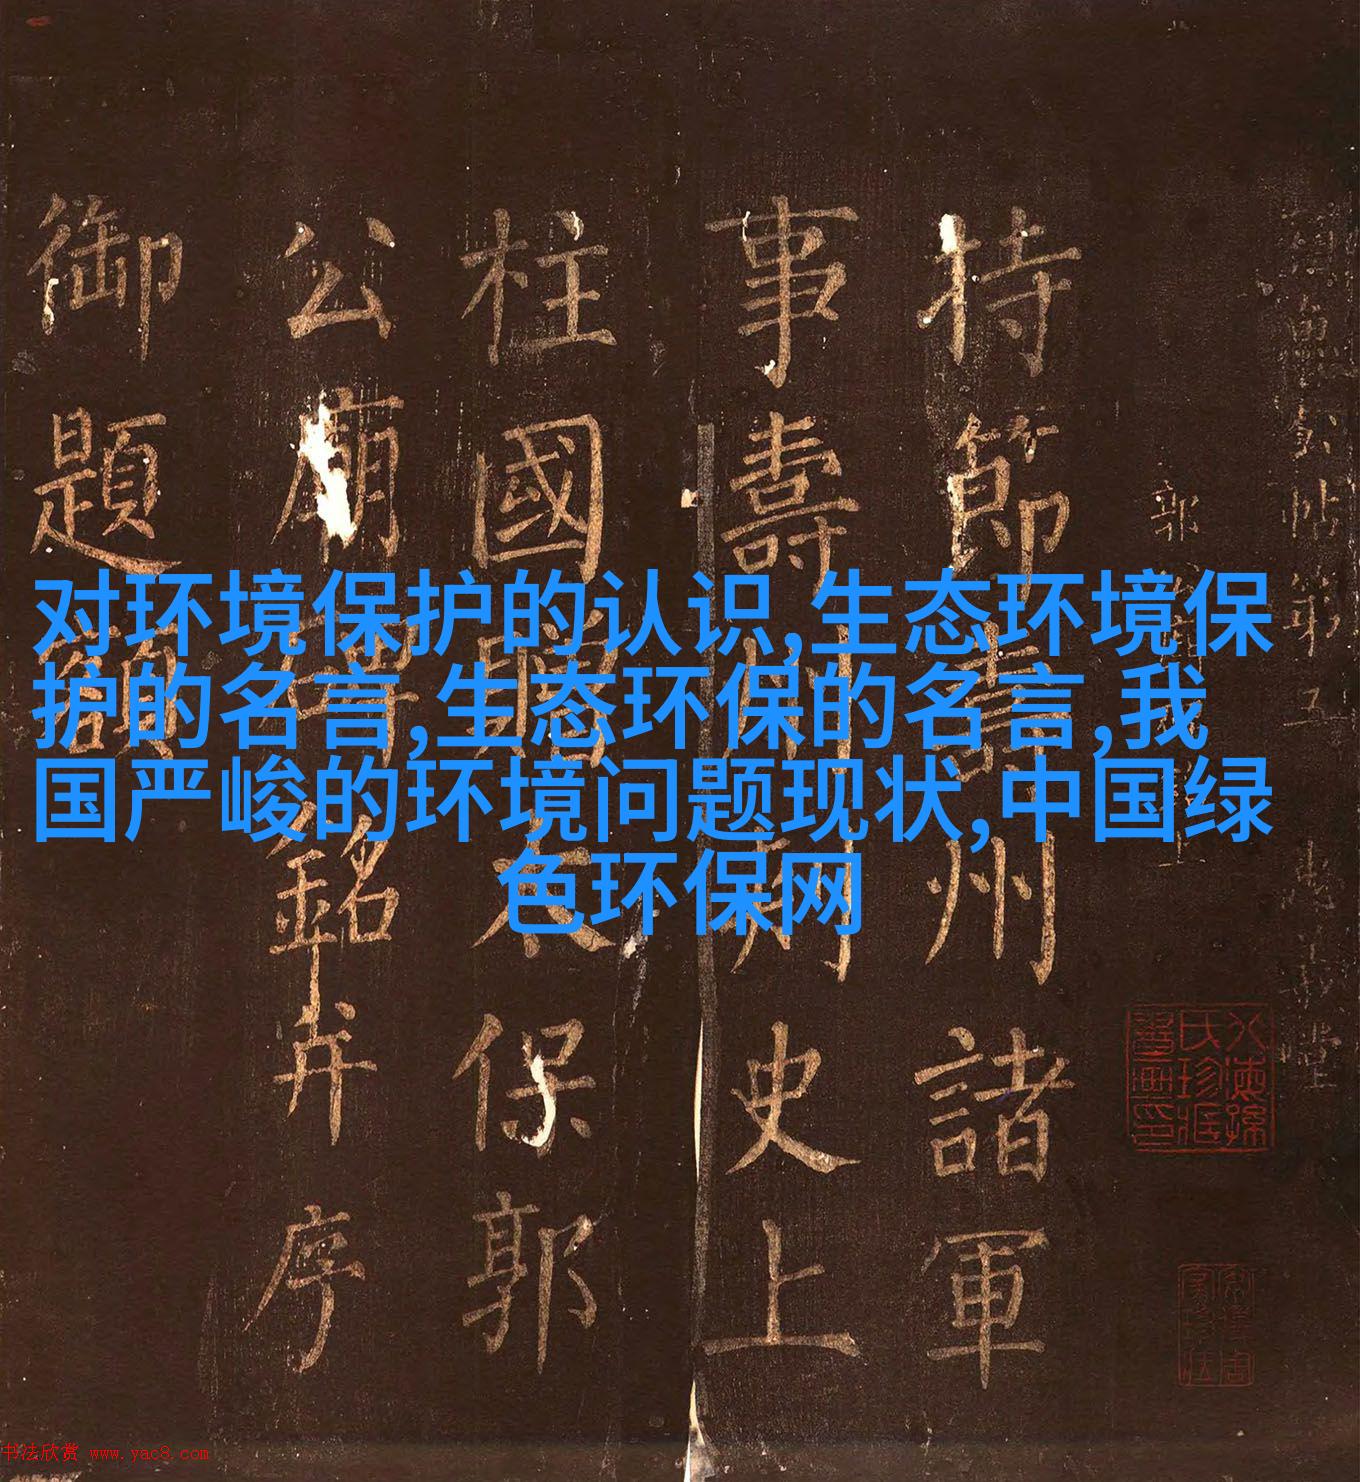 对环境保护的认识,生态环境保
护的名言,生态环保的名言,我
国严峻的环境问题现状,中国绿
色环保网
帖第五 忠義堂
郭
持節壽州諸軍
事壽州刺史上
柱國贈太保郭
公廟碑銘并序
御題額
书法欣赏 www.yac8.com